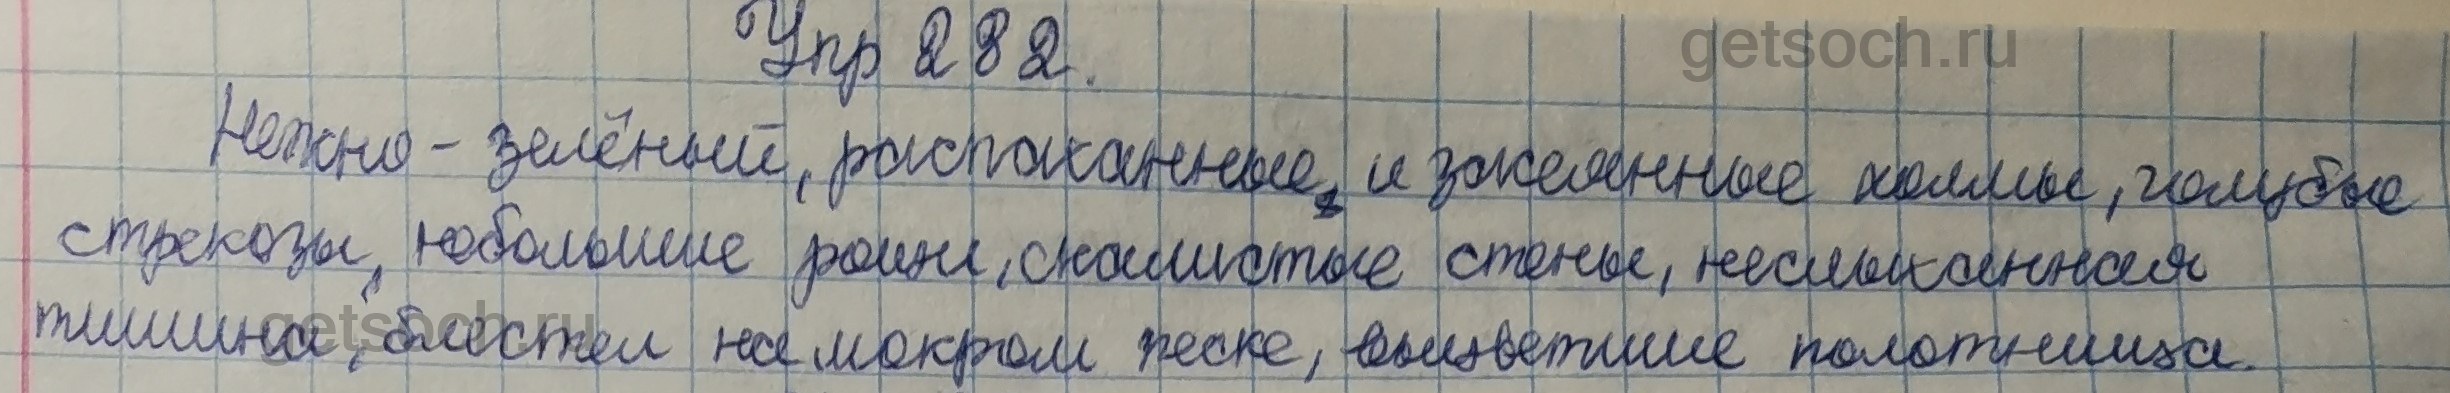 Упр 282.
getsoch.ru
Нежно-зелёный, распаханные, и засеянные холмы, голубые
стрекозы, небольшие раины, скалистые стены, неслыханная
getsoch.ru
тишина, блестел на мокром песке, выцветшие полотнища.